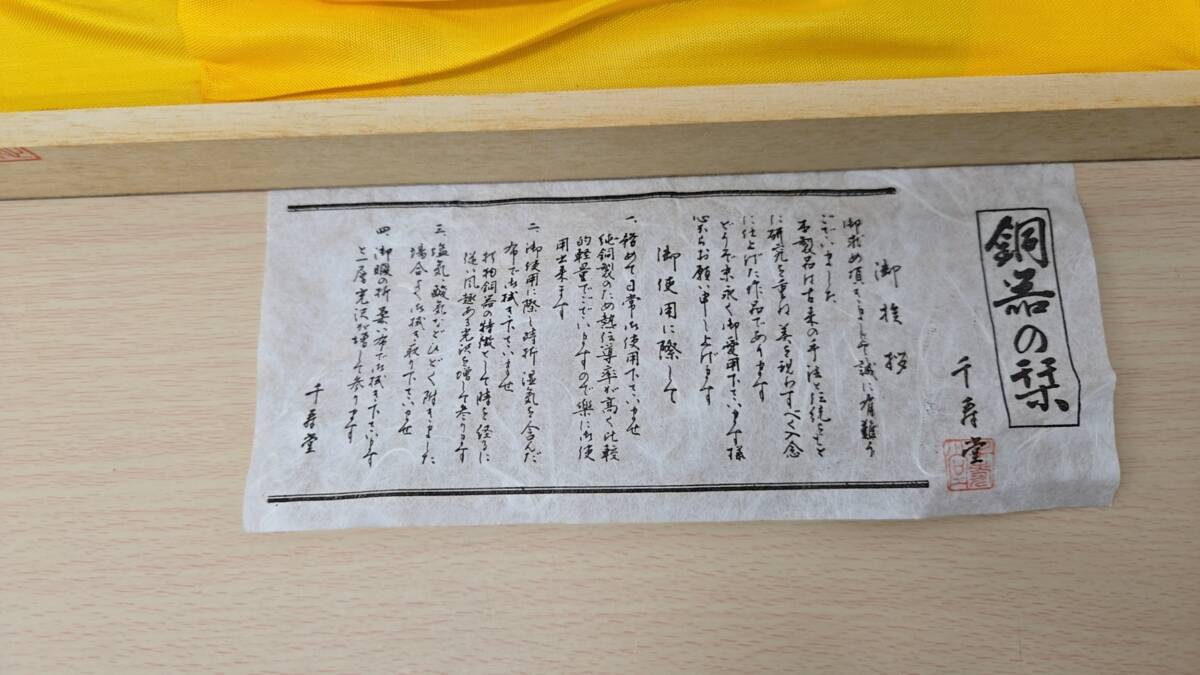 銅器の栞
千寿堂
御挨拶
御求め頂きまして誠に有難う
ございました
本製品は古来の手法と伝統をもと
に研究を重ね 美を現わすべく入念
に仕上げた作品であります
どうぞ末永く御愛用下さいます様
心からお願い申し上げます
御使用に際して
一、努めて日常御使用下さいませ
純銅製のため熱伝導率が高く比較
的軽量でございますので楽に御使
用出来ます
二、御使用に際し時折 湿気を含んだ
布で御拭き下さいませ
打物銅器の特徴として時を経るに
従い風趣ある光沢を増して参ります
三、塩気 酸気などひどく附きました
場合よく御拭き取り下さいませ
四、御暇の折 柔い布で御拭き下さいます
と一層光沢が増して参ります
千寿堂